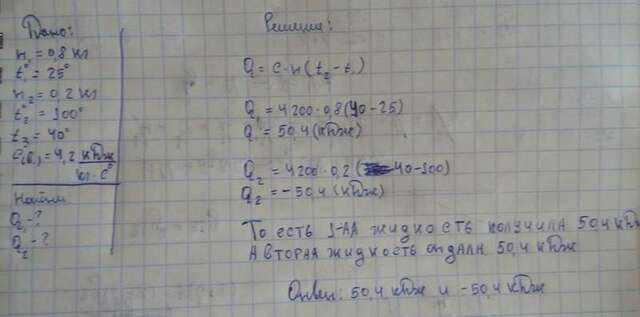 Дано:
m₁ = 0,8 кг
t₁° = 25°
m₂ = 0,2 кг
t₂° = 100°
t₃ = 40°
C(в) = 4,2 кДж
кг · C°
Найти
Q₁ - ?
Q₂ - ?
Решение:
Q = c · m (t₂ - t₁)
Q₁ = 4200 · 0,8 (40 - 25)
Q₁ = 50,4 (кДж)
Q₂ = 4200 · 0,2 (40 - 100)
Q₂ = -50,4 (кДж)
То есть 1-ая жидкость получила 50,4 кДж
А вторая жидкость отдала 50,4 кДж
Ответ: 50,4 кДж и -50,4 кДж